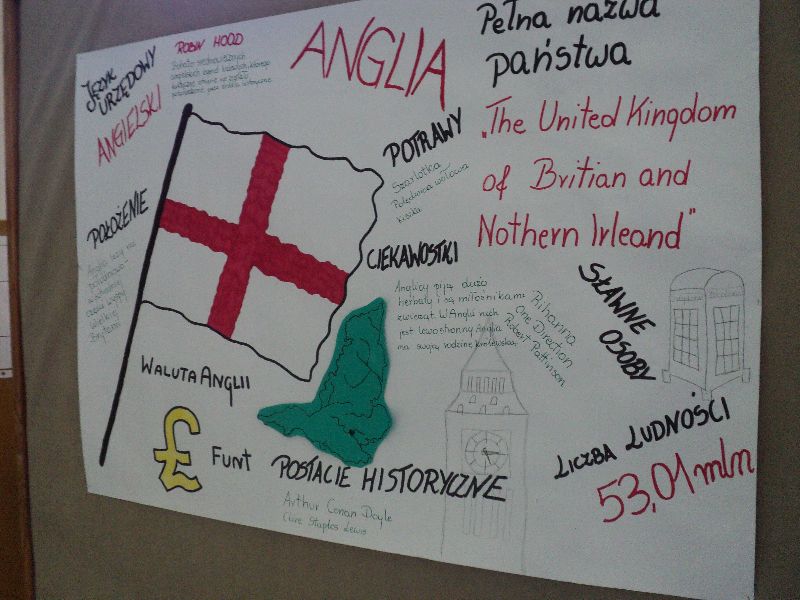 JĘZYK
URZĘDOWY
ANGIELSKI
ROBIN HOOD
ANGLIA
Pełna nazwa
państwa
„The United Kingdom
of Britian and
Nothern Irleand"
POŁOŻENIE
Anglia leży na
Wielkiej
Brytanii
POTRAWY
Szarlotka
Polędwica wołowa
kiszka
CIEKAWOSTKI
Anglicy piją dużo
herbaty i są miłośnikami
zwierząt. W Anglii ruch
jest lewostronny. Anglia
ma swoją rodzinę królewską.
SŁAWNE
OSOBY
Rihanna
One Direction
Robert Pattinson
WALUTA ANGLII
£ FUNT
POSTACIE HISTORYCZNE
Arthur Conan Doyle
Clive Staples Lewis
LICZBA LUDNOŚCI
53,01 mln